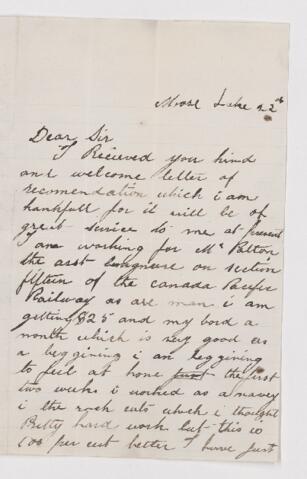 Moose Lake 22th
Dear Sir
I Recieved you kind
and welcome letter of
recomendation which i am
thankfull for it will be of
great service to me at present
I am working for Mr Patton
the asst engineare on section
fifteen of the canada Pacific
Railway as are man i am
getting $25 and my bord a
month which is very good as
a beggining i am beggining
to feel at home just the first
two weeks i worked as a navey
i the rock cuts which i thought
Pretty hard work but this is
100 per cent better I have just